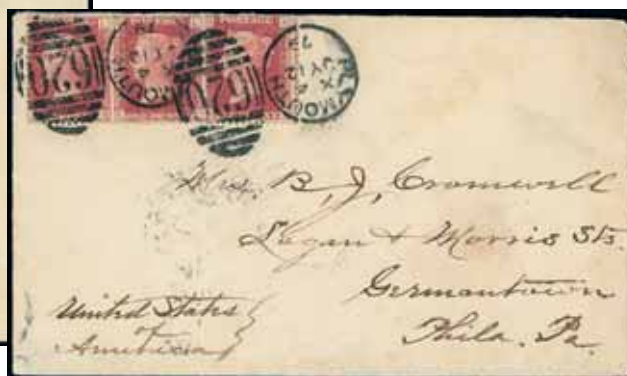 POSTAGE POSTAGE
620 PLYMOUTH 620 PLYMOUTH
JY 12
Mrs. B. J. Cromwell
Logan & Morris Sts.
Germantown
Phila. Pa.
United States
of
America